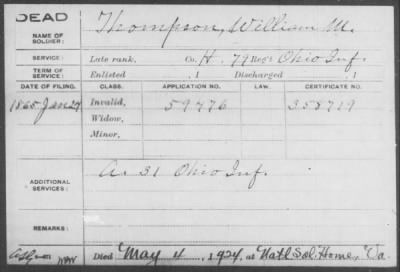 DEAD
NAME OF SOLDIER: Thompson, William M.
SERVICE: Late rank, Co. H. 79 Reg't Ohio Inf.
TERM OF SERVICE: Enlisted , 1 Discharged , 1
DATE OF FILING. CLASS. APPLICATION NO. LAW. CERTIFICATE NO.
1865 Jan 27 Invalid, 59776 358719
Widow,
Minor,
ADDITIONAL SERVICES: A. 31 Ohio Inf.
REMARKS:
Died May 4, 1924, at Nat'l Sol. Home, Va.